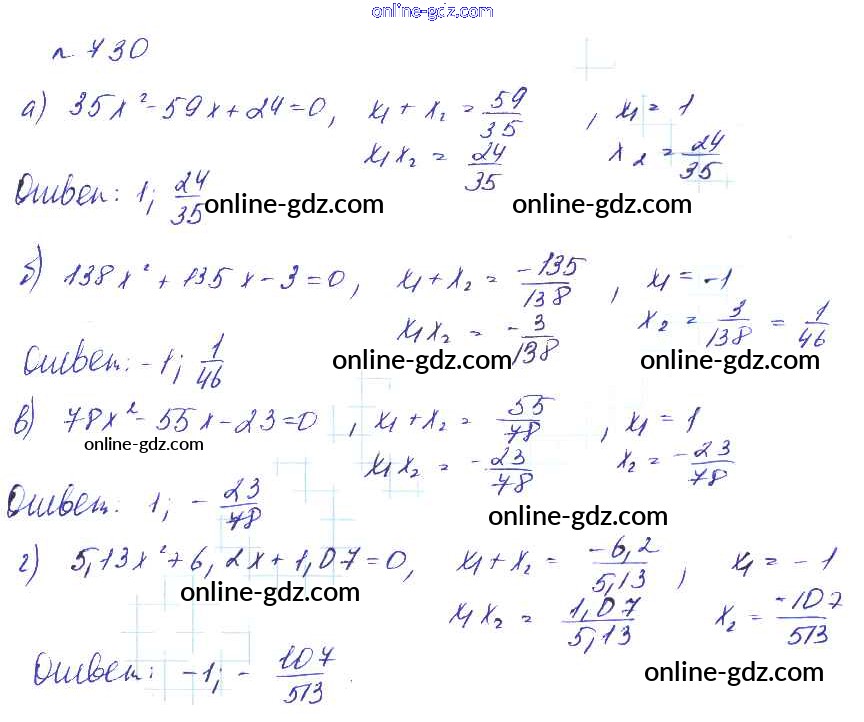 online-gdz.com
n 730
а) 35x² - 59x + 24 = 0, x₁ + x₂ = 59/35, x₁ = 1
x₁x₂ = 24/35 x₂ = 24/35
Ответ: 1; 24/35 online-gdz.com online-gdz.com
б) 138x² + 135x - 3 = 0, x₁ + x₂ = -135/138, x₁ = -1
x₁x₂ = -3/138 x₂ = 3/138 = 1/46
Ответ: -1; 1/46 online-gdz.com online-gdz.com
в) 78x² - 55x - 23 = 0, x₁ + x₂ = 55/78, x₁ = 1
online-gdz.com x₁x₂ = -23/78 x₂ = -23/78
Ответ: 1; -23/78 online-gdz.com
г) 5,13x² + 6,2x + 1,07 = 0, x₁ + x₂ = -6,2/5,13, x₁ = -1
online-gdz.com x₁x₂ = 1,07/5,13 x₂ = -107/513
Ответ: -1; -107/513. online-gdz.com